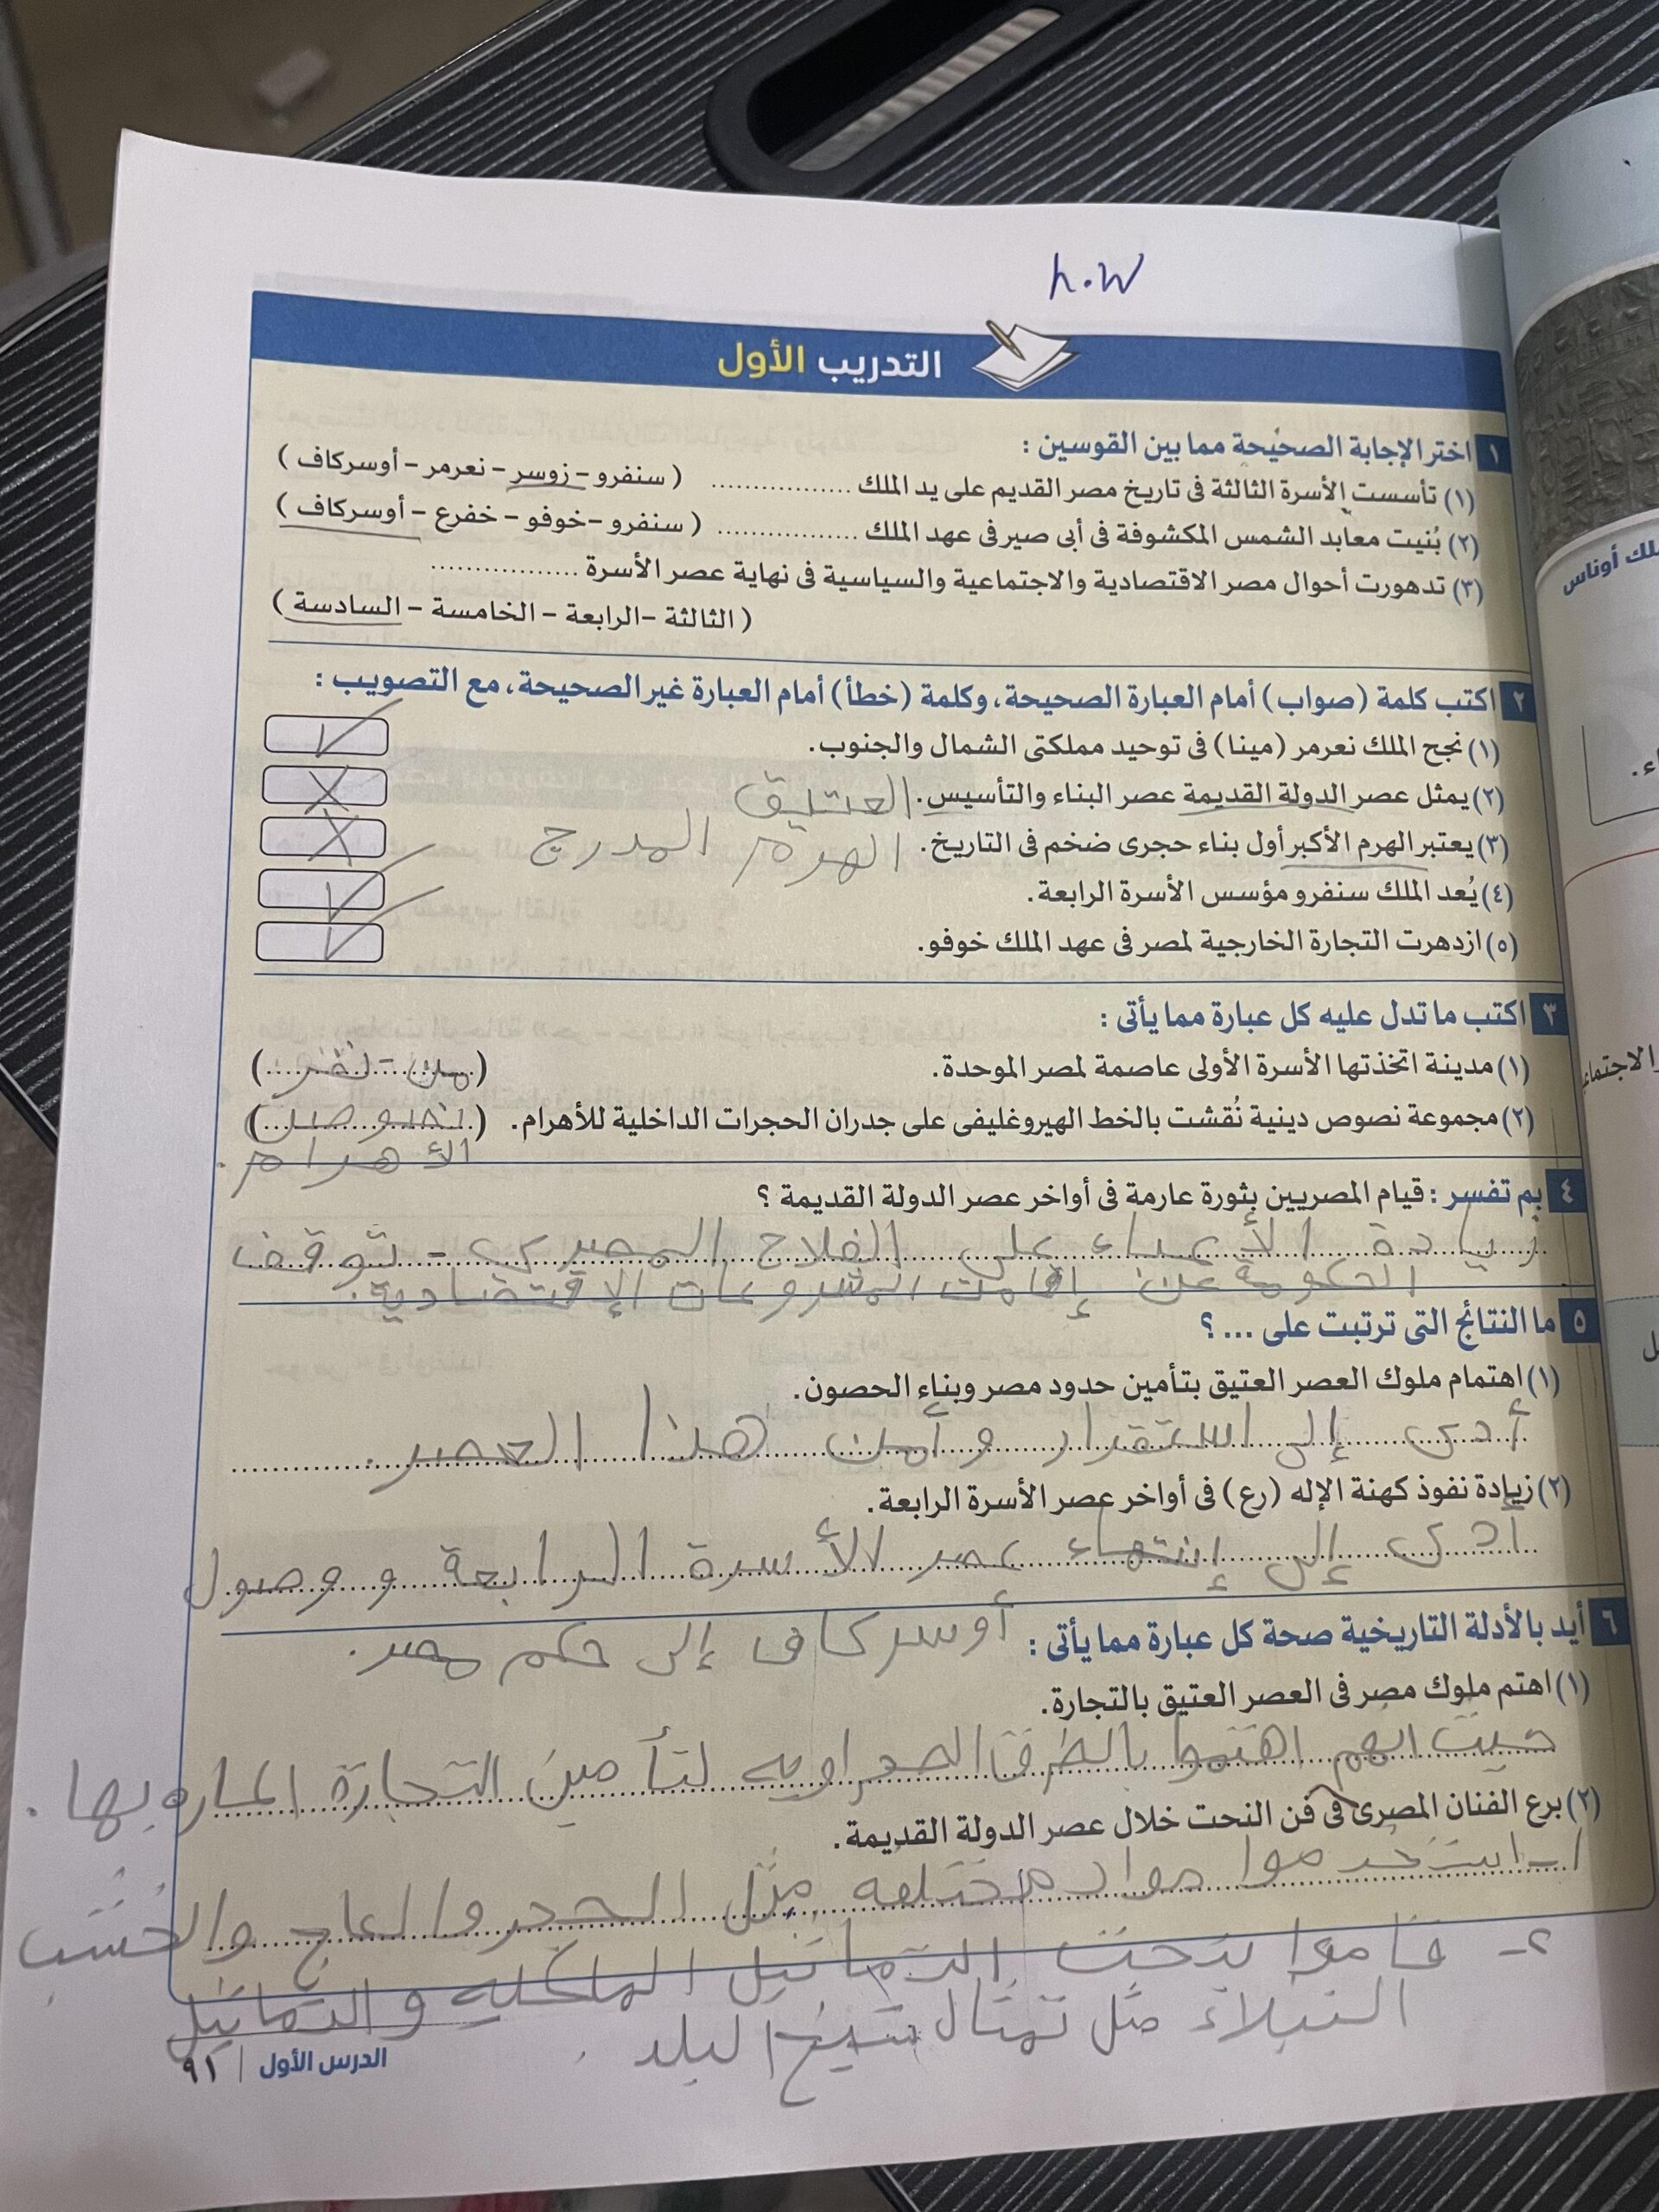 h.w
التدريب الأول
١ اختر الإجابة الصحيحة مما بين القوسين :
(١) تأسست الأسرة الثالثة فى تاريخ مصر القديم على يد الملك ................ ( سنفرو – زوسر – نعرمر – أوسركاف )
(٢) بُنيت معابد الشمس المكشوفة فى أبى صير فى عهد الملك ................ ( سنفرو – خوفو – خفرع – أوسركاف )
(٣) تدهورت أحوال مصر الاقتصادية والاجتماعية والسياسية فى نهاية عصر الأسرة ................
( الثالثة – الرابعة – الخامسة – السادسة )
٢ اكتب كلمة (صواب) أمام العبارة الصحيحة، وكلمة (خطأ) أمام العبارة غير الصحيحة، مع التصويب :
(١) نجح الملك نعرمر (مينا) فى توحيد مملكتى الشمال والجنوب. ✓
(٢) يمثل عصر الدولة القديمة عصر البناء والتأسيس. العتيق X
(٣) يعتبر الهرم الأكبر أول بناء حجرى ضخم فى التاريخ. الهرم المدرج X
(٤) يُعد الملك سنفرو مؤسس الأسرة الرابعة. ✓
(٥) ازدهرت التجارة الخارجية لمصر فى عهد الملك خوفو. ✓
٣ اكتب ما تدل عليه كل عبارة مما يأتى :
(١) مدينة اتخذتها الأسرة الأولى عاصمة لمصر الموحدة. (من - نفر)
(٢) مجموعة نصوص دينية نُقشت بالخط الهيروغليفى على جدران الحجرات الداخلية للأهرام. (نصوص)
الأهرام.
٤ بم تفسر : قيام المصريين بثورة عارمة فى أواخر عصر الدولة القديمة ؟
زيادة الأعباء على الفلاح المصرى - توقف
الحكومة عن إقامت المشروعات الإقتصادية.
٥ ما النتائج التى ترتبت على ... ؟
(١) اهتمام ملوك العصر العتيق بتأمين حدود مصر وبناء الحصون.
أدى إلى استقرار و أمن هذا العصر.
(٢) زيادة نفوذ كهنة الإله (رع) فى أواخر عصر الأسرة الرابعة.
أدى إلى إنتهاء عصر الأسرة الرابعة و وصول
أوسركاف إلى حكم مصر.
٦ أيد بالأدلة التاريخية صحة كل عبارة مما يأتى :
(١) اهتم ملوك مصر فى العصر العتيق بالتجارة.
حيث انهم اهتموا بالطرق الصحراويه لتأمين التجارة الماره بها.
(٢) برع الفنان المصرى فى فن النحت خلال عصر الدولة القديمة.
١- استخدموا مواد مختلفه مثل الحجر والعاج والخشب
٢- قاموا بنحت التماثيل الملكيه و التماثيل
النبلاء مثل تمثال شيخ البلد.
الدرس الأول | ٩١
لك أوناس